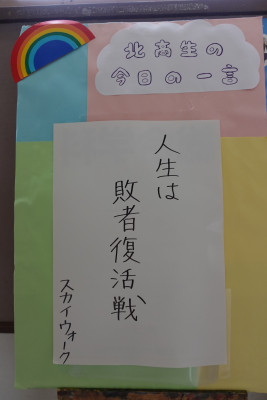 北高生の
今日の一言
人生は
敗者復活戦
スカイウォーク